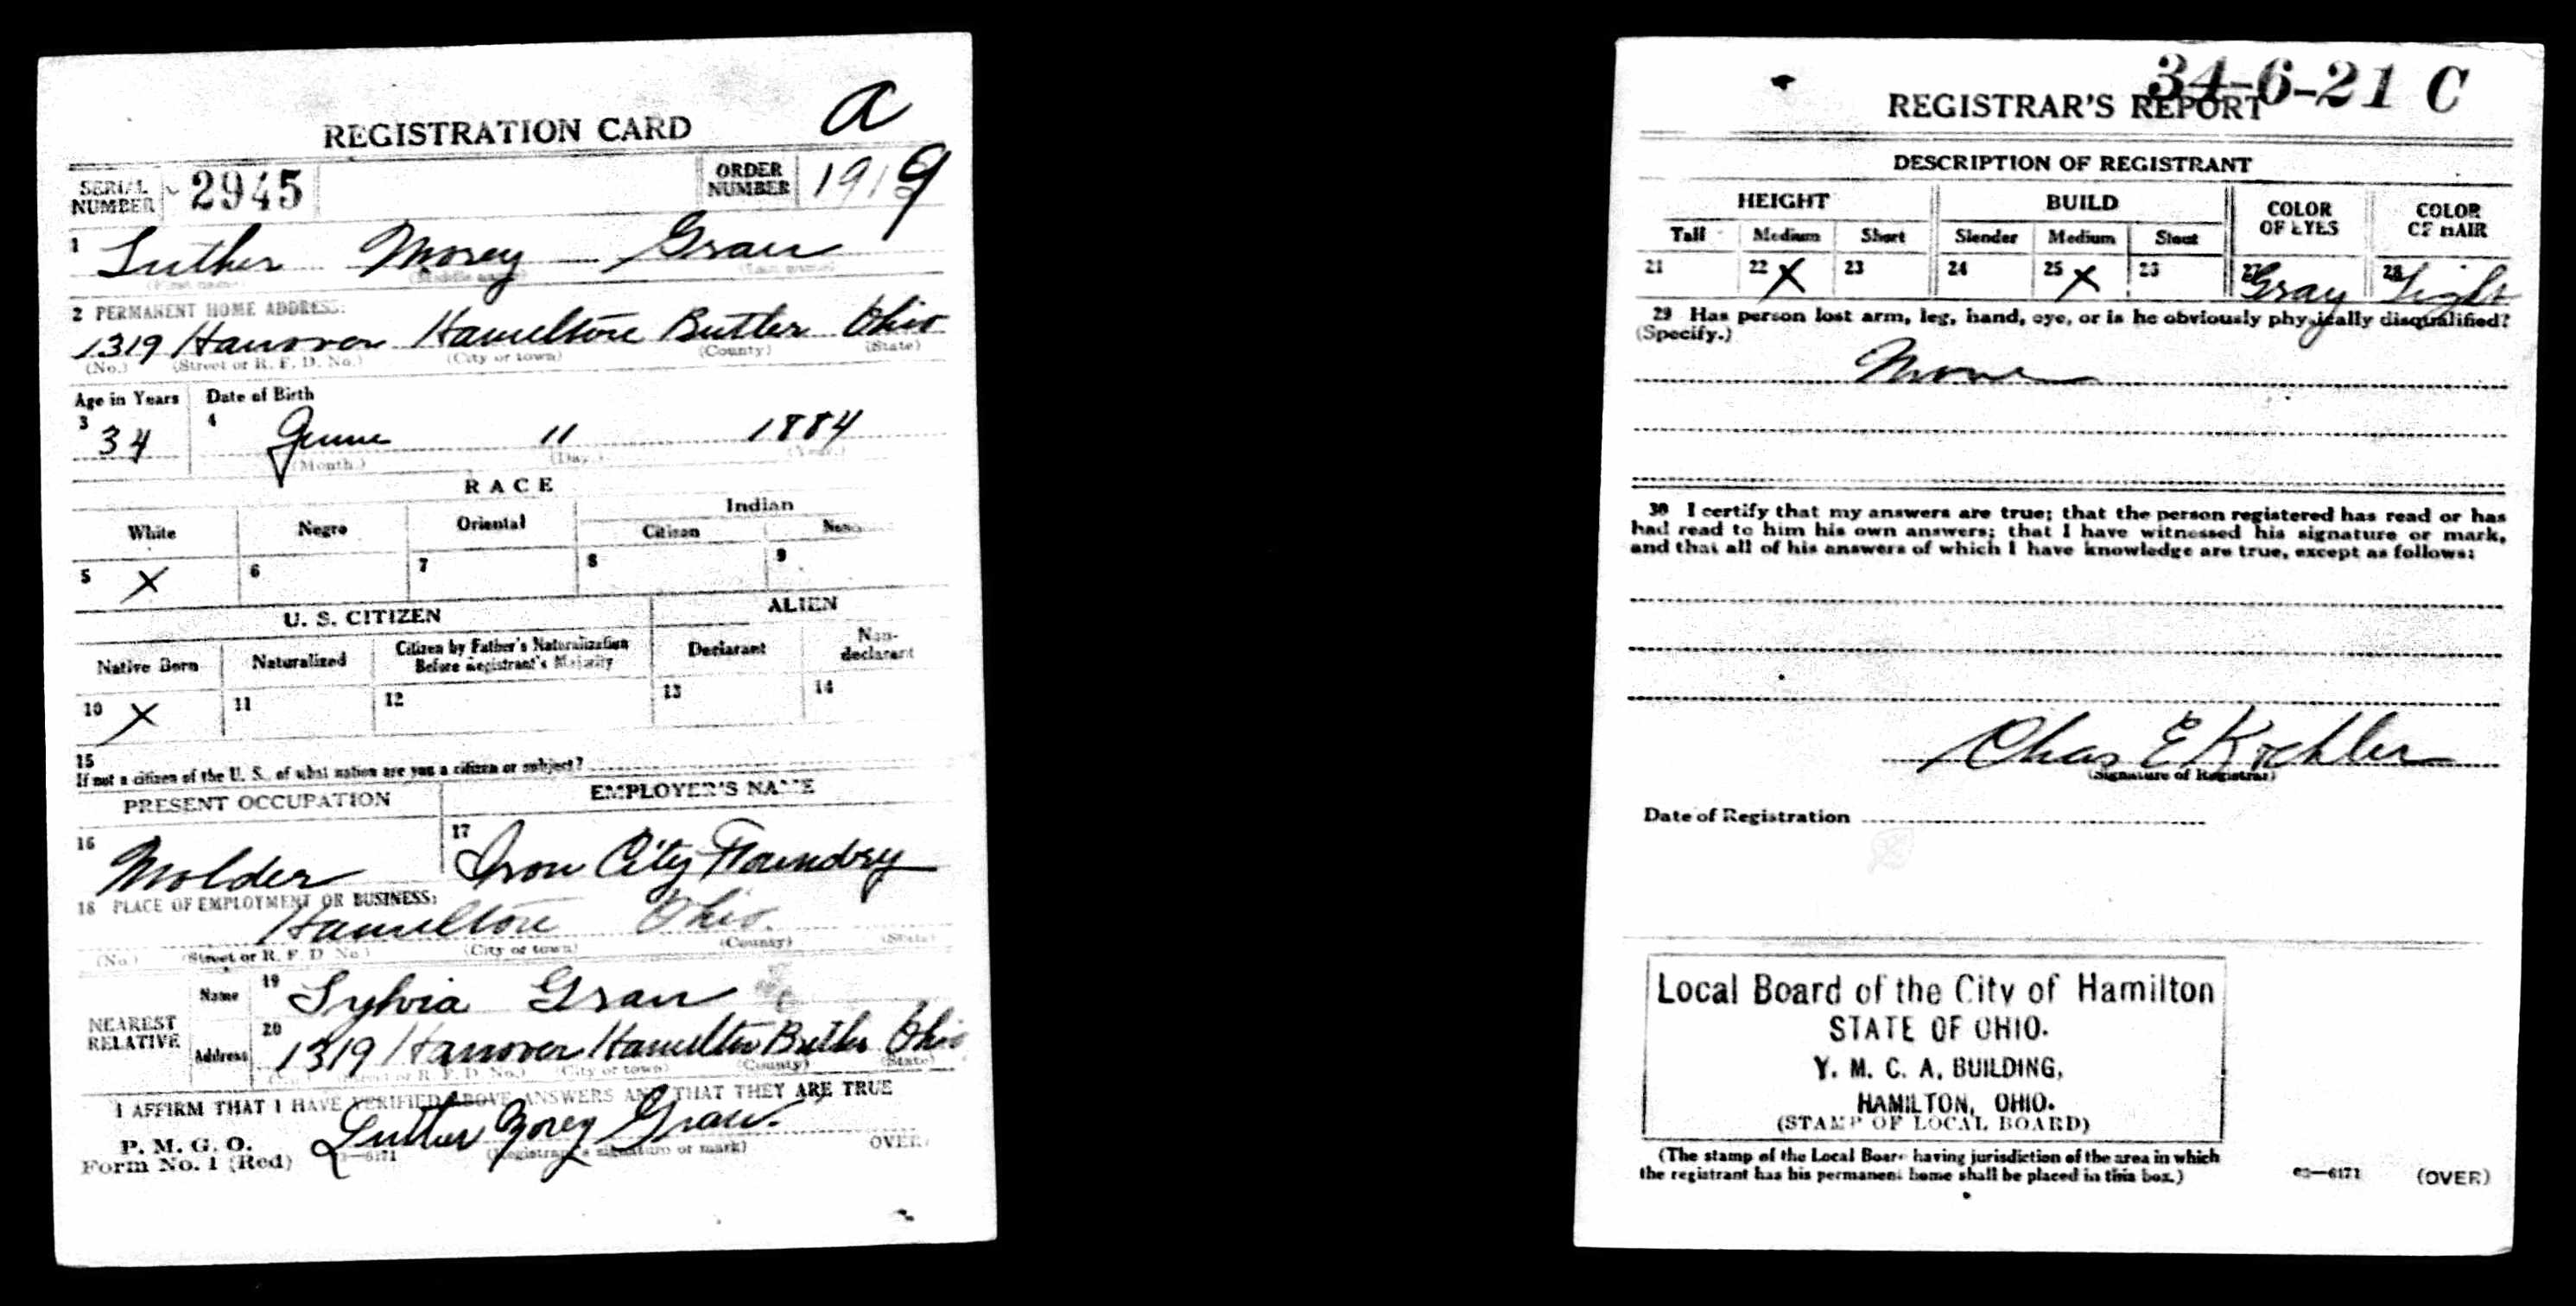 REGISTRATION CARD a
SERIAL NUMBER 2945 ORDER NUMBER 1919
1 Luther Morey Grau
(First name) (Middle name) (Last name)
2 PERMANENT HOME ADDRESS:
1319 Hanover Hamilton Butler Ohio
(No.) (Street or R. F. D. No.) (City or town) (County) (State)
Age in Years Date of Birth
3 34 4 June 11 1884
(Month.) (Day.) (Year.)
RACE
White Negro Oriental Indian
Citizen
5 X 6 7 8 9
U. S. CITIZEN ALIEN
Native Born Naturalized Citizen by Father's Naturalization Before Registrant's Majority Declarant Non-declarant
10 X 11 12 13 14
15
If not a citizen of the U. S., of what nation are you a citizen or subject?
PRESENT OCCUPATION EMPLOYER'S NAME
16 Molder 17 Iron City Foundry
18 PLACE OF EMPLOYMENT OR BUSINESS:
Hamilton Ohio.
(No.) (Street or R. F. D. No.) (City or town) (County) (State)
NEAREST RELATIVE
Name 19 Sylvia Grau
Address 20 1319 Hanover Hamilton Butler Ohio
(No.) (Street or R. F. D. No.) (City or town) (County) (State)
I AFFIRM THAT I HAVE VERIFIED ABOVE ANSWERS AND THAT THEY ARE TRUE
P. M. G. O.
Form No. 1 (Red) Luther Morey Grau.
(Registrant's signature or mark) OVER
34-6-21 C
REGISTRAR'S REPORT
DESCRIPTION OF REGISTRANT
HEIGHT BUILD COLOR OF EYES COLOR OF HAIR
Tall Medium Short Slender Medium Stout
21 22 X 23 24 25 X 26 27 Gray 28 Light
29 Has person lost arm, leg, hand, eye, or is he obviously physically disqualified?
(Specify.)
None
30 I certify that my answers are true; that the person registered has read or has
had read to him his own answers; that I have witnessed his signature or mark,
and that all of his answers of which I have knowledge are true, except as follows:
Chas E Kochler
(Signature of Registrar)
Date of Registration
Local Board of the City of Hamilton
STATE OF OHIO.
Y. M. C. A. BUILDING,
HAMILTON, OHIO.
(STAMP OF LOCAL BOARD)
(The stamp of the Local Board having jurisdiction of the area in which
the registrant has his permanent home shall be placed in this box.)
03—6171 (OVER)